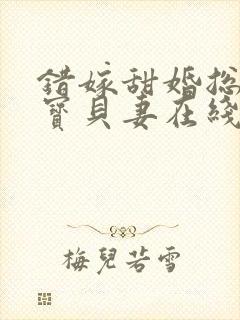 错嫁甜婚总
寶貝妻在綫
梅兒若雪